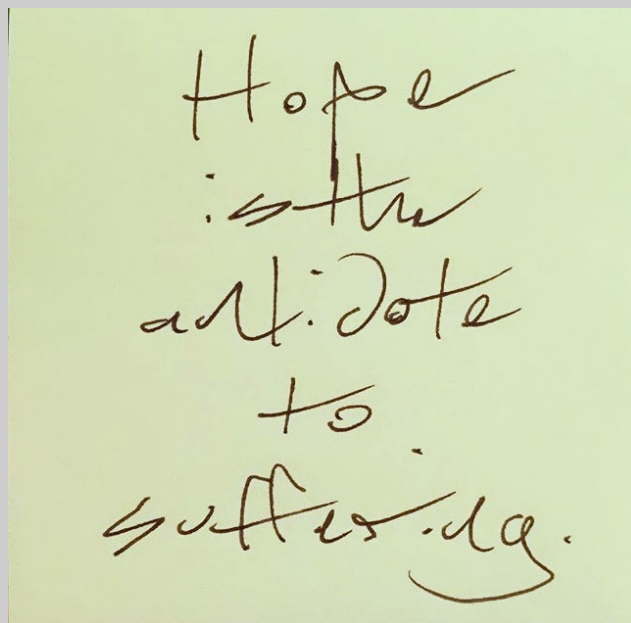 Hope
is the
antidote
to
suffering.